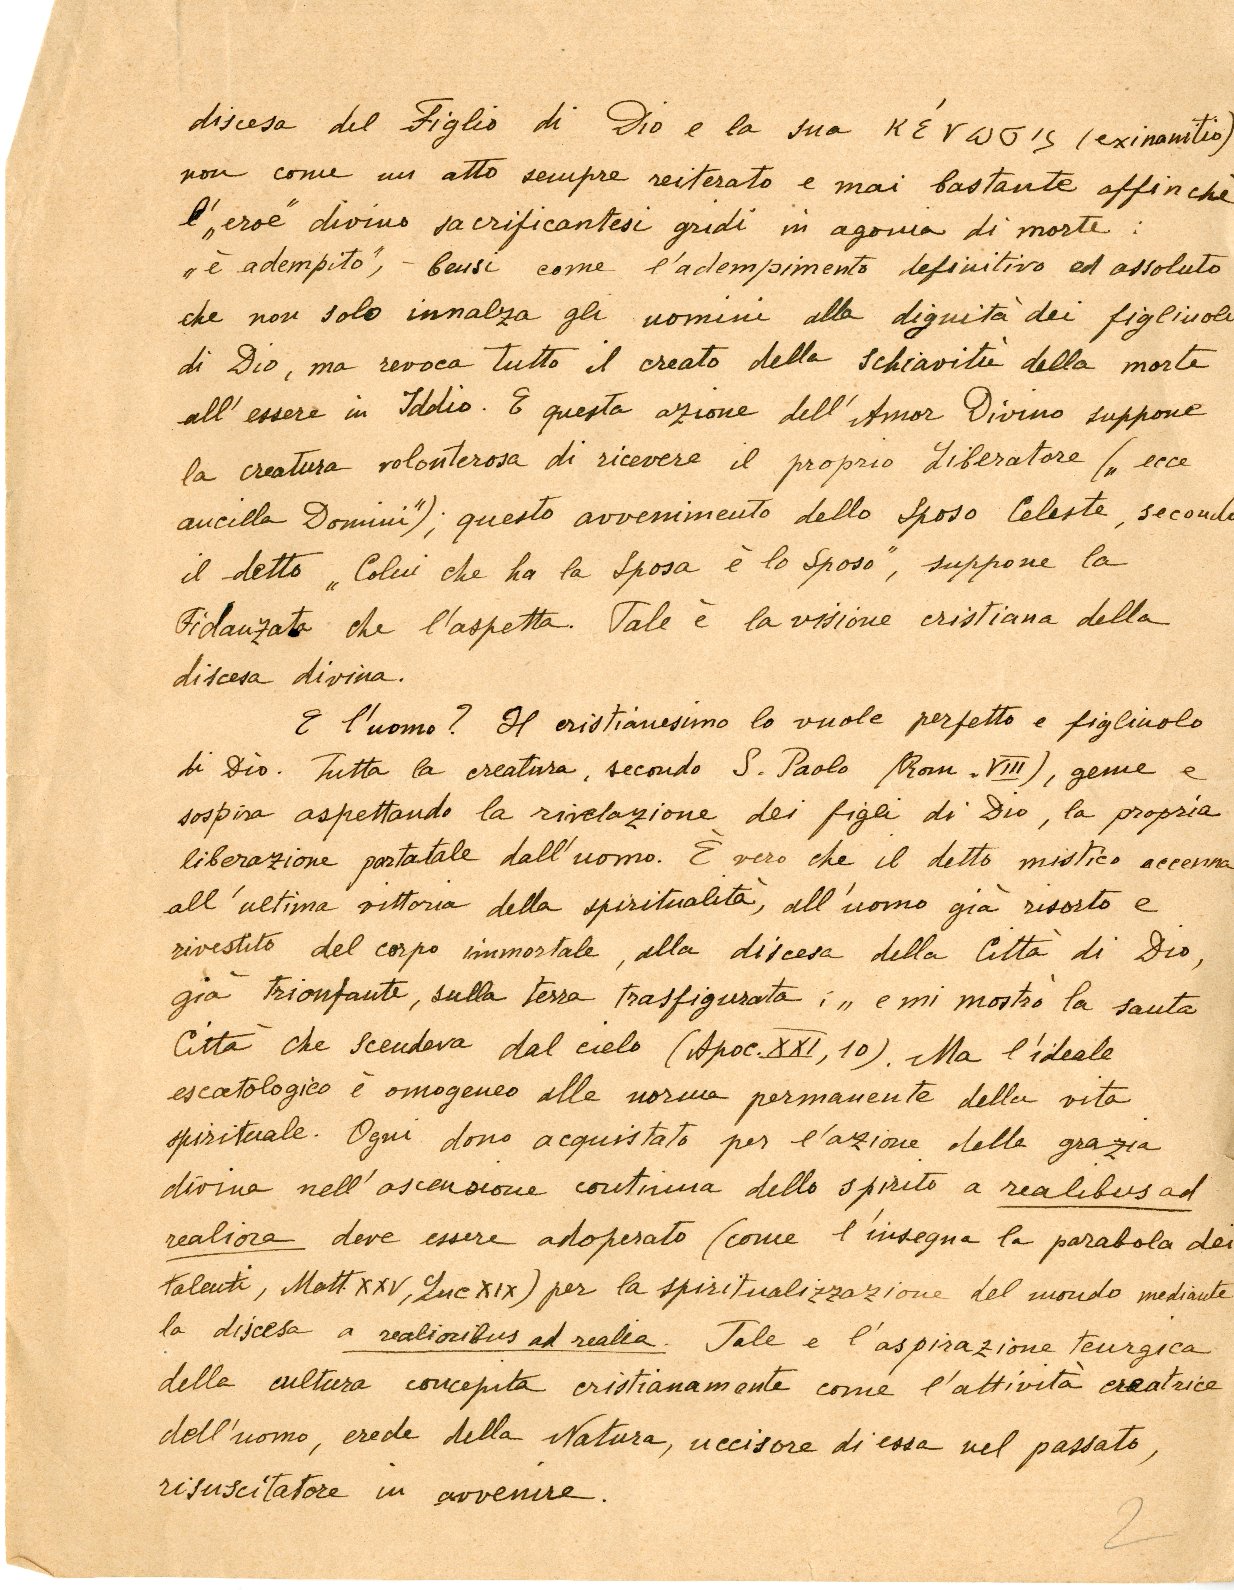 discesa del Figlio di Dio e la sua κένωσις (exinanitio)
non come un atto sempre reiterato e mai bastante affinchè
l'„eroe" divino sacrificantesi gridi in agonia di morte :
„è adempito", – bensì come l'adempimento definitivo ed assoluto
che non solo innalza gli uomini alla dignità dei figliuoli
di Dio, ma revoca tutto il creato della schiavitù della morte
all'essere in Iddio. E questa azione dell'Amor Divino suppone
la creatura volonterosa di ricevere il proprio Liberatore („ecce
ancilla Domini"); questo avvenimento dello Sposo Celeste, secondo
il detto „Colui che ha la Sposa è lo Sposo", suppone la
Fidanzata che l'aspetta. Tale è la visione cristiana della
discesa divina.
E l'uomo? Il cristianesimo lo vuole perfetto e figliuolo
di Dio. Tutta la creatura, secondo S. Paolo (Rom. VIII), geme e
sospira aspettando la rivelazione dei figli di Dio, la propria
liberazione portatale dall'uomo. È vero che il detto mistico accenna
all'ultima vittoria della spiritualità, all'uomo già risorto e
rivestito del corpo immortale, alla discesa della Città di Dio,
già trionfante, sulla terra trasfigurata : „e mi mostrò la santa
Città che scendeva dal cielo (Apoc. XXI, 10). Ma l'ideale
escatologico è omogeneo alla norma permanente della vita
spirituale. Ogni dono acquistato per l'azione della grazia
divina nell'ascensione continua dello spirito a realibus ad
realiora deve essere adoperato (come l'insegna la parabola dei
talenti, Matt XXV, Luc XIX) per la spiritualizzazione del mondo mediante
la discesa a realioribus ad realia. Tale e l'aspirazione teurgica
della cultura concepita cristianamente come l'attività creatrice
dell'uomo, erede della Natura, uccisore di essa nel passato,
risuscitatore in avvenire.
2